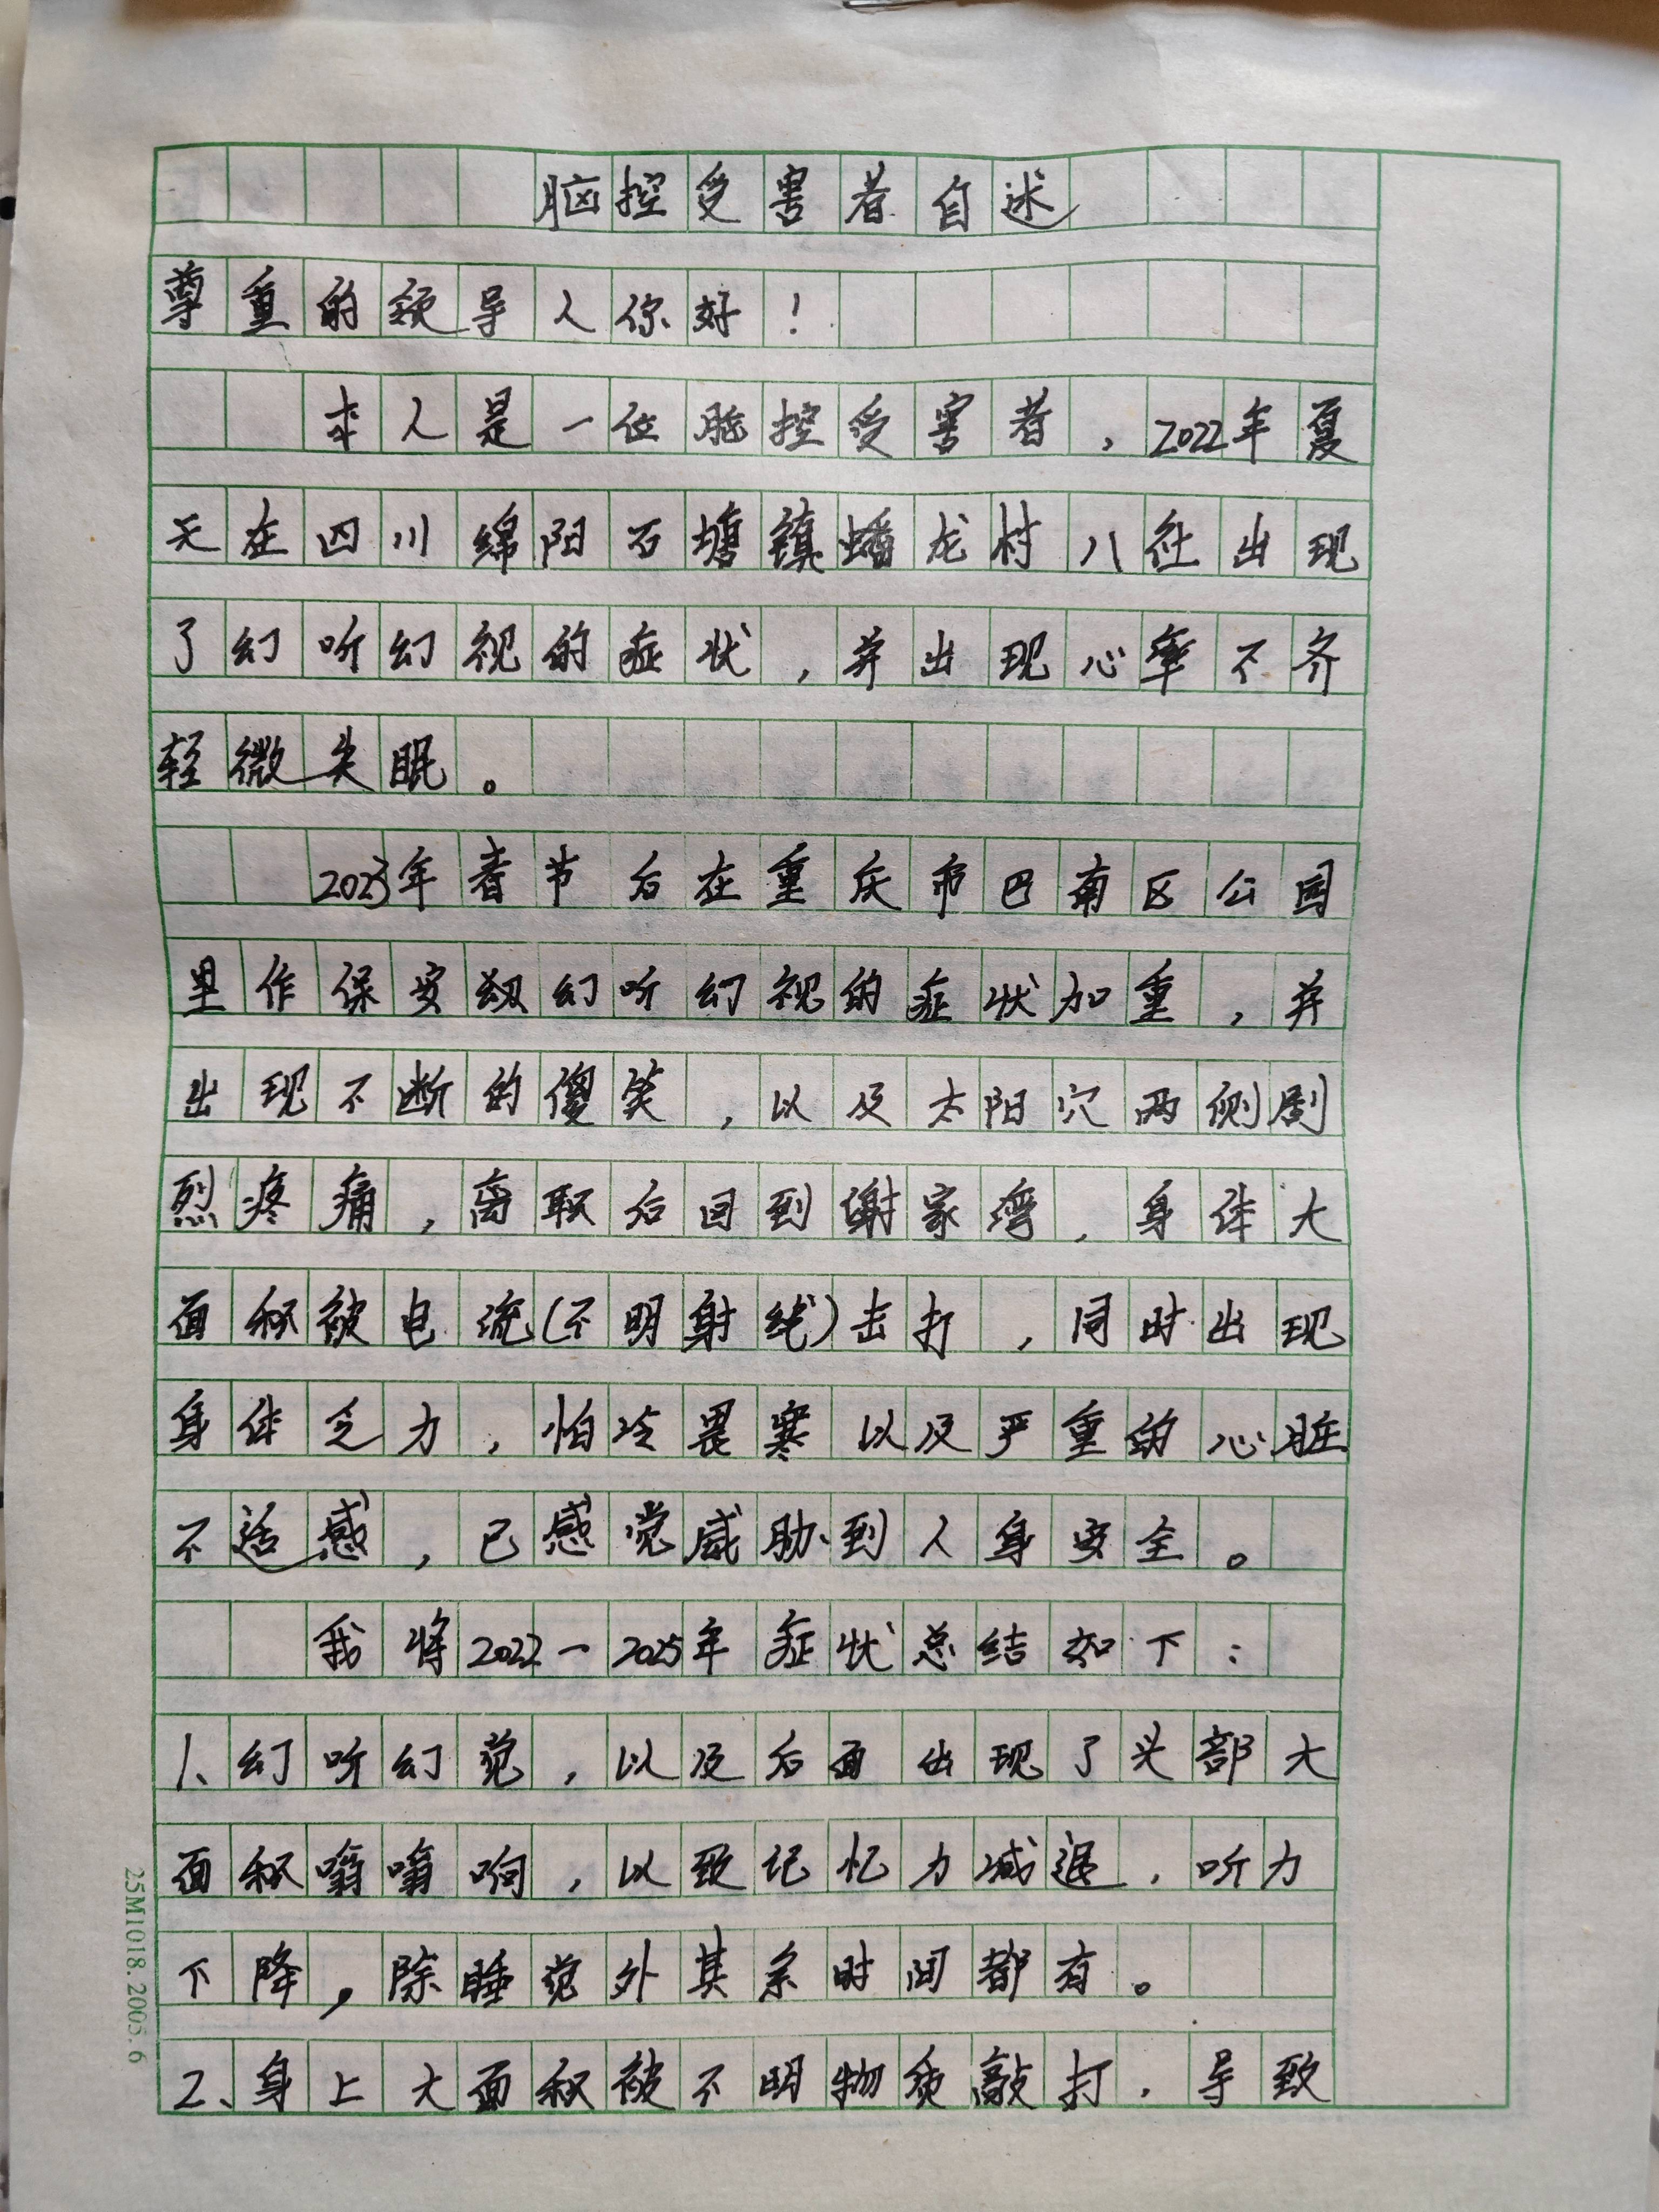 脑控受害者自述
尊重的领导人你好！
本人是一位脑控受害者，2022年夏
天在四川绵阳石塘镇蟠龙村八社出现
了幻听幻视的症状，并出现心率不齐
轻微失眠。
2023年春节后在重庆市巴南区公园
里作保安幻听幻视的症状加重，并
出现不断的傻笑，以及太阳穴两侧剧
烈疼痛，离职后回到谢家湾，身体大
面积被电流(不明射线)击打，同时出现
身体乏力，怕冷畏寒以及严重的心脏
不适感，已感觉威胁到人身安全。
我将2022一2025年症状总结如下：
1、幻听幻觉，以及后面出现了头部大
面积嗡嗡响，以致记忆力减退，听力
下降，除睡觉外其余时间都有。
2、身上大面积被不明物质敲打，导致
25M1018.2005.6